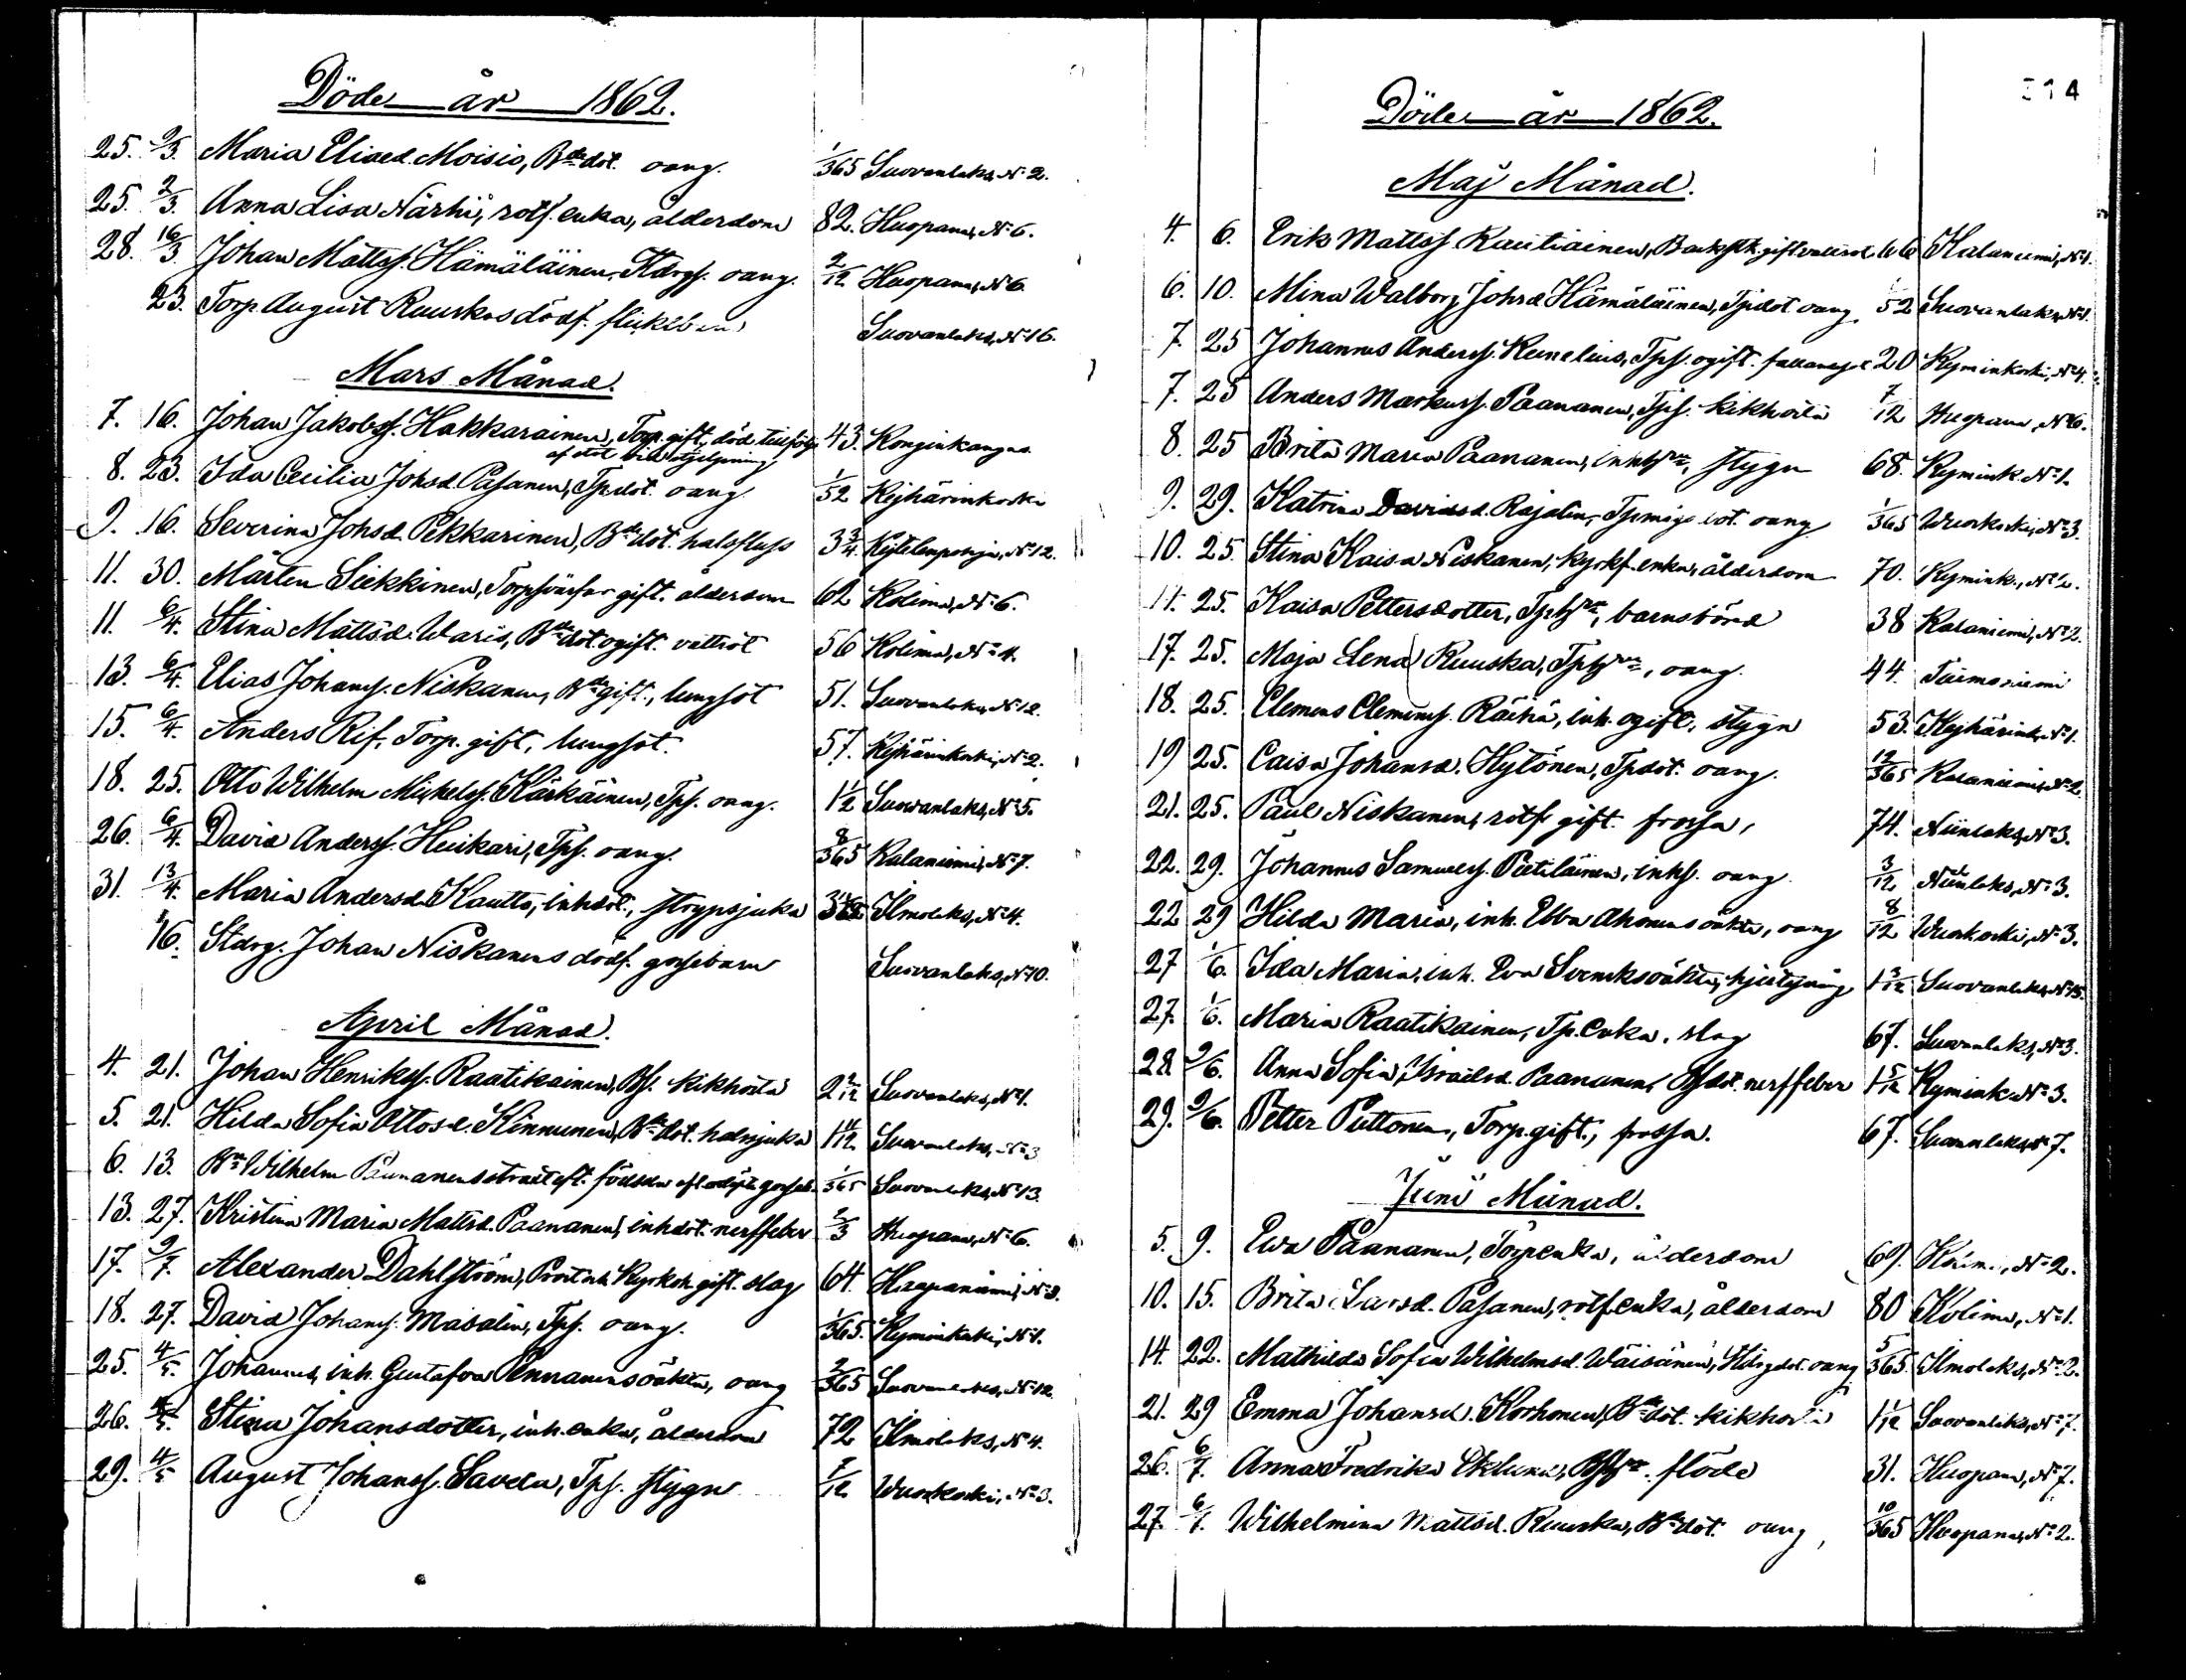 Döde år 1862.
25. 2/3. Maria Eliaed. Moisio, Bde dot. oang. 1/365 Suovanlaks, No 2.
25. 2/3. Anna Lisa Närhi, rotf. enka, ålderdom 82. Huopana, No 6.
28. 16/3. Johan Mattss. Hämäläinen, Stdrgs. oang. 2/12 Huopana, No 6.
23. Torp. August Ruuskas dödf. flickebarn Suovanlaks, No 16.
Mars Månad.
7. 16. Johan Jakobss. Hakkarainen, Torp. gift, död till följe 43. Konginkangas
af stöt vid stjelpning
8. 23. Ida Cecilia Johsd. Pasanen, Tpdot. oang. 1/52 Kejhärinkoski
9. 16. Severina Johsd. Pekkarinen, Bde dot. halsfluss 3 3/4 Kejtelenpohja, No 12.
11. 30. Mårten Siekkinen, Torpsvärfar gift. ålderdom 62 Kolima, No 6.
11. 6/4. Stina Mattsd. Waris, Bde dot. ogift. vattsot 56 Kolima, No 4.
13. 6/4. Elias Johanss. Niskanen, Bde gift., lungsot 51. Suovanlaks, No 12.
15. 6/4. Anders Rif, Torp. gift, lungsot. 57. Kejhärinkoski, No 2.
18. 25. Otto Wilhelm Mickelss. Kärkäinen, Tps. oang. 1 1/2 Suovanlaks, No 5.
26. 6/4. David Anderss. Heikari, Tps. oang. 8/365 Kalaniemi, No 7.
31. 13/4. Maria Andersd. Kautto, inhdot., strypsjuka Ilmolaks, No 4.
16. Stdrg. Johan Niskanens dödf. gossebarn Suovanlaks, No 10.
April Månad.
4. 21. Johan Henrikss. Raatikainen, Bs. kikhosta 2 2/12 Suovanlaks, No 1.
5. 21. Hilda Sofia Ottosd. Kinnunen, Bde dot. halssjuka 1 11/12 Suovanlaks, No 3
6. 13. Bn Wilhelm Paananens strax eft. födseln afled. gosseb. 1/365 Suovanlaks, No 13.
13. 27. Kristina Maria Mattsd. Paananen, inhdot. nerffeber 2/3 Huopana, No 6.
17. 9/7. Alexander Dahlström, Prost och Kyrkoh. gift. slag 64 Haapaniemi, No 2.
18. 27. David Johanss. Masalin, Tps. oang. 1/365. Kyminkoski, No 1.
25. 4/5. Johannes, inh. Gustafva Pennanens oäkta, oang 2/365 Suovanlaks, No 12.
26. 4/5. Stina Johansdotter, inh. enka, ålderdom 72 Ilmolaks, No 4.
29. 4/5. August Johanss. Savela, Tps. stygn 7/12 Wuoskoski, No 3.
Döde år 1862.
Maj Månad.
4. 6. Erik Mattss. Rautiainen, gift. vattsot 66 Kalaniemi, No 1.
6. 10. Mina Walborg Johsd. Hämäläinen, Tpdot oang. 1/52 Suovanlaks, No 1.
7. 25 Johannes Anderss. Kunelius, Tps. ogift. 20 Kyminkoski, No 4.
7. 25 Anders Markuss. Paananen, Tps. kikhosta 7/12 Huopana, No 6.
8. 25 Brita Maria Paananen, stygn 68. Kymink. No 1.
9. 29. Katrina Davidsd. Rajalin, dot. oang 1/365 Wuoskoski, No 3.
10. 25. Stina Kaisa Niskanen, kyrkf. enka, ålderdom 70. Kymink., No 2.
11. 25. Kaisa Pettersdotter, barnsbörd 38 Kalaniemi, No 2.
17. 25. Maja Lena Ruuska, oang. 44. Taimoniemi
18. 25. Clemens Clemenss. Räihä, inh. ogift, stygn 53. Kejhärink. No 1.
19 25. Caisa Johansd. Hytönen, Tpdot. oang. 12/365 Kalaniemi, No 2.
21. 25. Paul Niskanen, rotf. gift. frossa, 74. Niinlaks, No 3.
22. 29. Johannes Samuelss. Pietiläinen, inhs. oang. 3/12 Niinlaks, No 3.
22 29 Hilda Maria, inh. Ebba Ahonens oäkta, oang 8/12 Wuoskoski, No 3.
27 1/6. Ida Maria, inh. Eva Svensks oäkta, 1 3/12 Suovanlaks, No 15.
27. 1/6. Maria Raatikainen, Tp. enka, slag 67. Suovanlaks, No 3.
28. 9/6. Anna Sofia Israelsd. Paananen, nerffeber 1 5/12 Kymink. No 3.
29. 9/6. Petter Puttonen, Torp. gift., frossa. 67. Suovanlaks, No 7.
Juni Månad.
5. 9. Ewa Paananen, Torpenka, ålderdom 69. Kolima, No 2.
10. 15. Brita Larsd. Pasanen, rotf. enka, ålderdom 80 Kolima, No 1.
14. 22. Mathilda Sofia Wilhelmsd. Wäisänen, Stdrgdot. oang 5/365. Ilmolaks, No 2.
21. 29 Emma Johansd. Korhonen, Bde dot. kikhosta 1 1/12 Suovanlaks, No 7.
26. 6/7. Anna Fredrika Eklund, flöde 31. Huopana, No 7.
27. 6/7. Wilhelmina Mattsd. Ruuska, Bde dot. oang, 10/365 Huopana, No 2.